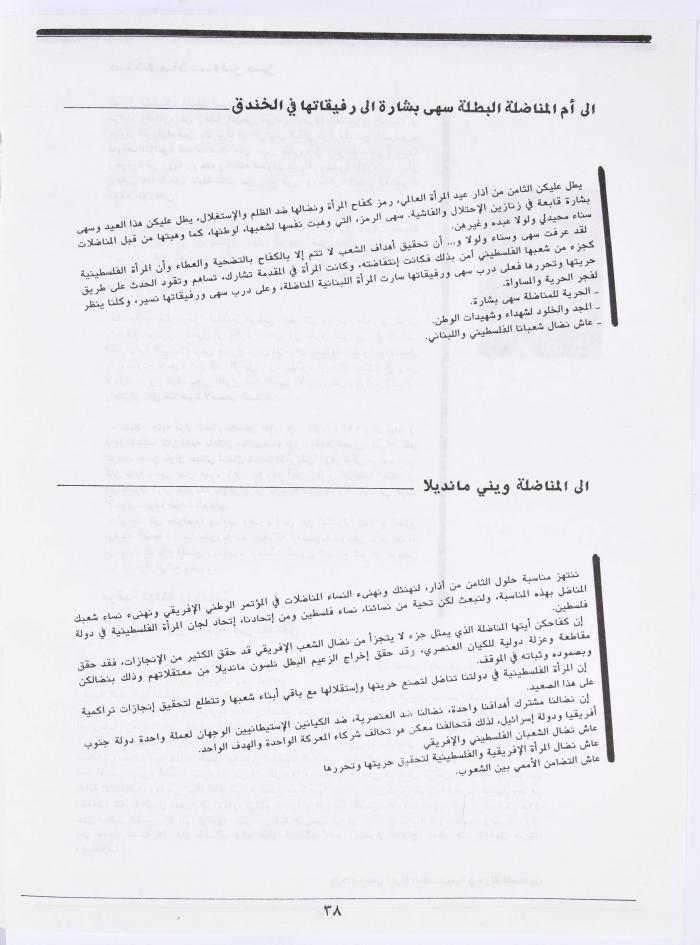 الى أم المناضلة البطلة سهى بشارة الى رفيقاتها في الخندق
يطل عليكن الثامن من أذار عيد المرأة العالمي، رمز كفاح المرأة ونضالها ضد الظلم والإستغلال، يطل عليكن هذا العيد وسهى
بشارة قابعة في زنازين الإحتلال والفاشية. سهى الرمز، التي وهبت نفسها لشعبها، لوطنها، كما وهبتها من قبل المناضلات
سناء محيدلي ولولا عبده وغيرهن.
لقد عرفت سهى وسناء ولولا و... أن تحقيق أهداف الشعب لا تتم إلا بالكفاح بالتضحية والعطاء وأن المرأة الفلسطينية
كجزء من شعبها الفلسطيني أمن بذلك فكانت إنتفاضته، وكانت المرأة في المقدمة تشارك، تساهم وتقود الحدث على طريق
حريتها وتحررها فعلى درب سهى ورفيقاتها سارت المرأة اللبنانية المناضلة، وعلى درب سهى ورفيقاتها نسير، وكلنا ينظر
لفجر الحرية والمساواة.
ـ الحرية للمناضلة سهى بشارة.
ـ المجد والخلود لشهداء وشهيدات الوطن.
ـ عاش نضال شعبانا الفلسطيني واللبناني.
الى المناضلة ويني مانديلا
ننتهز مناسبة حلول الثامن من أذار، لنهنئك ونهنىء النساء المناضلات في المؤتمر الوطني الإفريقي ونهنىء نساء شعبك
المناضل بهذه المناسبة، ولنبعث لكن تحية من نسائنا، نساء فلسطين ومن إتحادنا، إتحاد لجان المرأة الفلسطينية في دولة
فلسطين.
إن كفاحكن أيتها المناضلة الذي يمثل جزء لا يتجزأ من نضال الشعب الإفريقي قد حقق الكثير من الإنجازات، فقد حقق
مقاطعة وعزلة دولية للكيان العنصري، وقد حقق إخراج الزعيم البطل نلسون مانديلا من معتقلاتهم وذلك بنضالكن
وبصموده وثباته في الموقف.
إن المرأة الفلسطينية في دولتنا تناضل لتصنع حريتها وإستقلالها مع باقي أبناء شعبها وتتطلع لتحقيق إنجازات تراكمية
على هذا الصعيد.
إن نضالنا مشترك أهدافنا واحدة، نضالنا ضد العنصرية، ضد الكيانين الإستيطانيين الوجهان لعملة واحدة دولة جنوب
أفريقيا ودولة إسرائيل، لذلك فتحالفنا معكن هو تحالف شركاء المعركة الواحدة والهدف الواحد.
عاش نضال الشعبان الفلسطيني والإفريقي
عاش نضال المرأة الإفريقية والفلسطينية لتحقيق حريتها وتحررها
عاش التضامن الأممي بين الشعوب.
٣٨